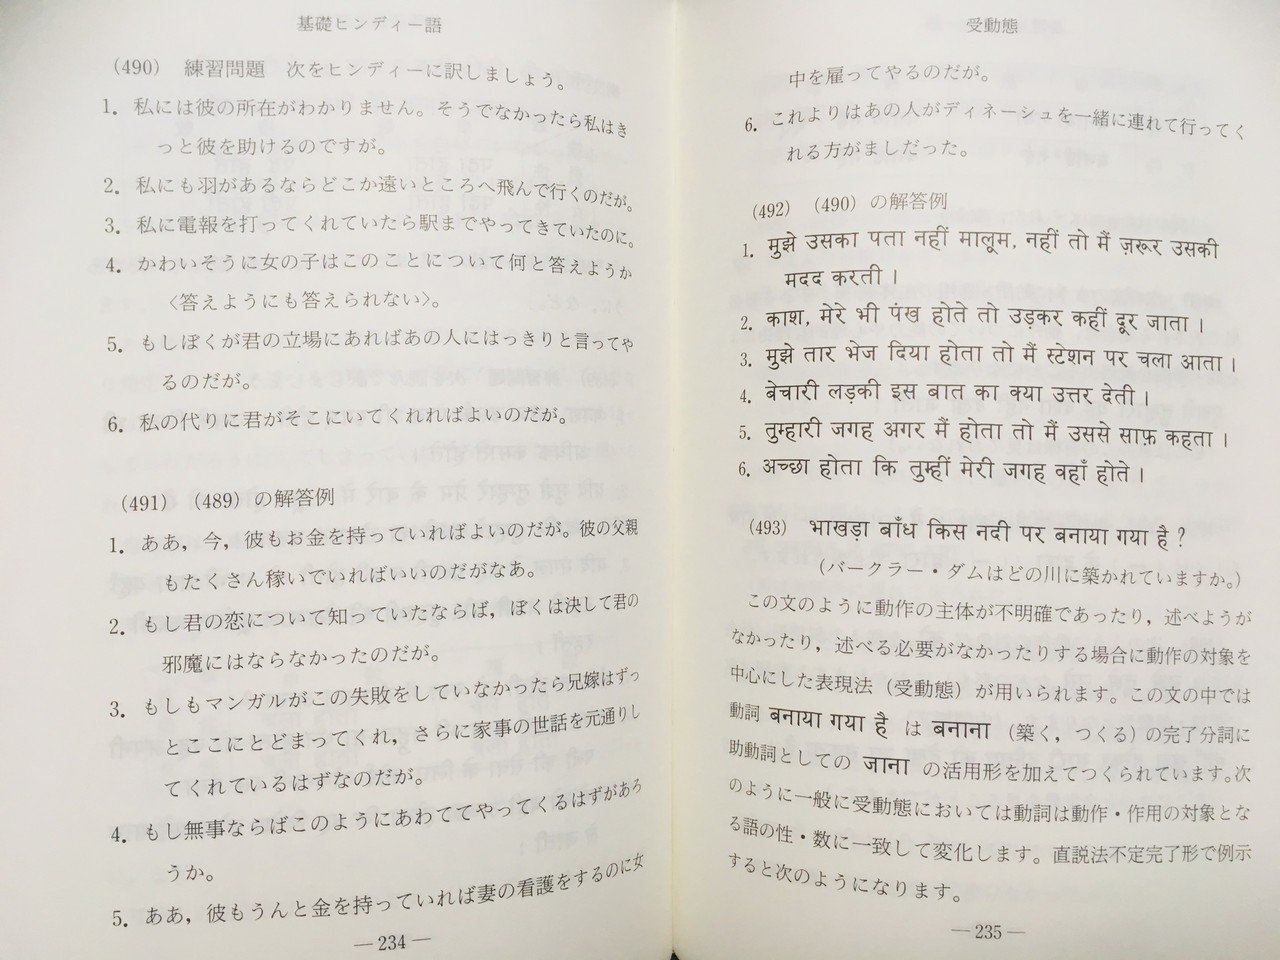 基礎ヒンディー語
(490) 練習問題 次をヒンディーに訳しましょう。
1. 私には彼の所在がわかりません。そうでなかったら私はき
っと彼を助けるのですが。
2. 私にも羽があるならどこか遠いところへ飛んで行くのだが。
3. 私に電報を打ってくれていたら駅までやってきていたのに。
4. かわいそうに女の子はこのことについて何と答えようか
〈答えようにも答えられない〉。
5. もしぼくが君の立場にあればあの人にはっきりと言ってや
るのだが。
6. 私の代りに君がそこにいてくれればよいのだが。
(491) (489) の解答例
1. ああ，今，彼もお金を持っていればよいのだが。彼の父親
もたくさん稼いでいればいいのだがなあ。
2. もし君の恋について知っていたならば，ぼくは決して君の
邪魔にはならなかったのだが。
3. もしもマンガルがこの失敗をしていなかったら兄嫁はずっ
とここにとどまってくれ，さらに家事の世話を元通りし
てくれているはずなのだが。
4. もし無事ならばこのようにあわててやってくるはずがあろ
うか。
5. ああ，彼もうんと金を持っていれば妻の看護をするのに女
—234—
受動態
中を雇ってやるのだが。
6. これよりはあの人がディネーシュを一緒に連れて行ってく
れる方がましだった。
(492) (490) の解答例
1. मुझे उसका पता नहीं मालूम, नहीं तो मैं ज़रूर उसकी
मदद करती ।
2. काश, मेरे भी पंख होते तो उड़कर कहीं दूर जाता ।
3. मुझे तार भेज दिया होता तो मैं स्टेशन पर चला आता ।
4. बेचारी लड़की इस बात का क्या उत्तर देती ।
5. तुम्हारी जगह अगर मैं होता तो मैं उससे साफ़ कहता ।
6. अच्छा होता कि तुम्हीं मेरी जगह वहाँ होते ।
(493) भाखड़ा बाँध किस नदी पर बनाया गया है ?
(バークラー・ダムはどの川に築かれていますか。)
この文のように動作の主体が不明確であったり，述べようが
なかったり，述べる必要がなかったりする場合に動作の対象を
中心にした表現法（受動態）が用いられます。この文の中では
動詞 बनाया गया है は बनाना （築く，つくる）の完了分詞に
助動詞としての जाना の活用形を加えてつくられています。次
のように一般に受動態においては動詞は動作・作用の対象とな
る語の性・数に一致して変化します。直説法不定完了形で例示
すると次のようになります。
—235—